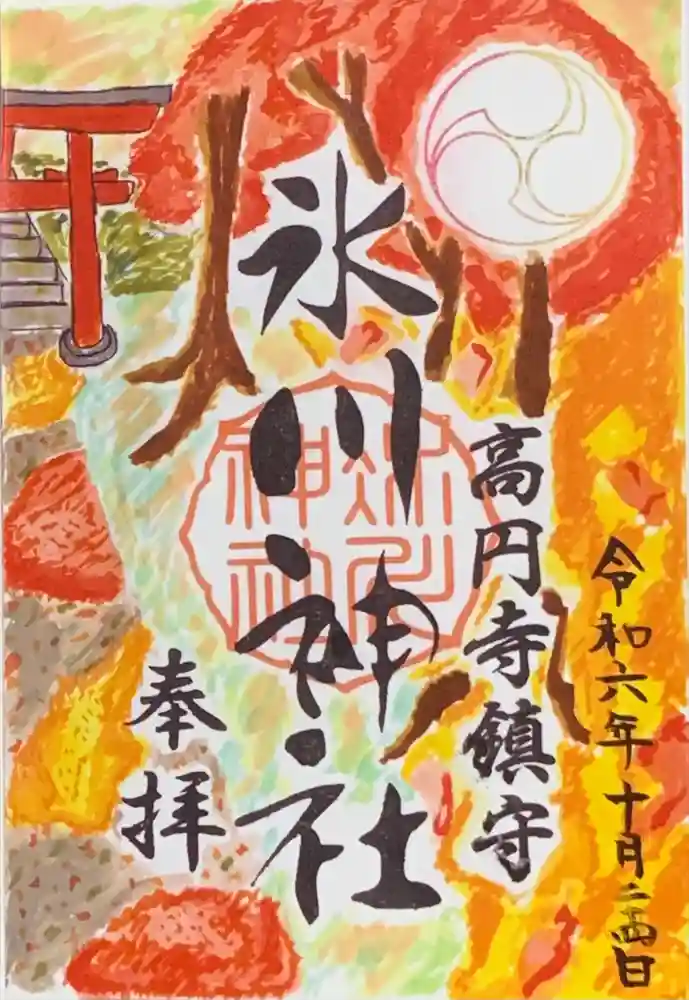 令和六年十月二十四日
高円寺鎮守
氷川神社
氷川
神社
奉拝